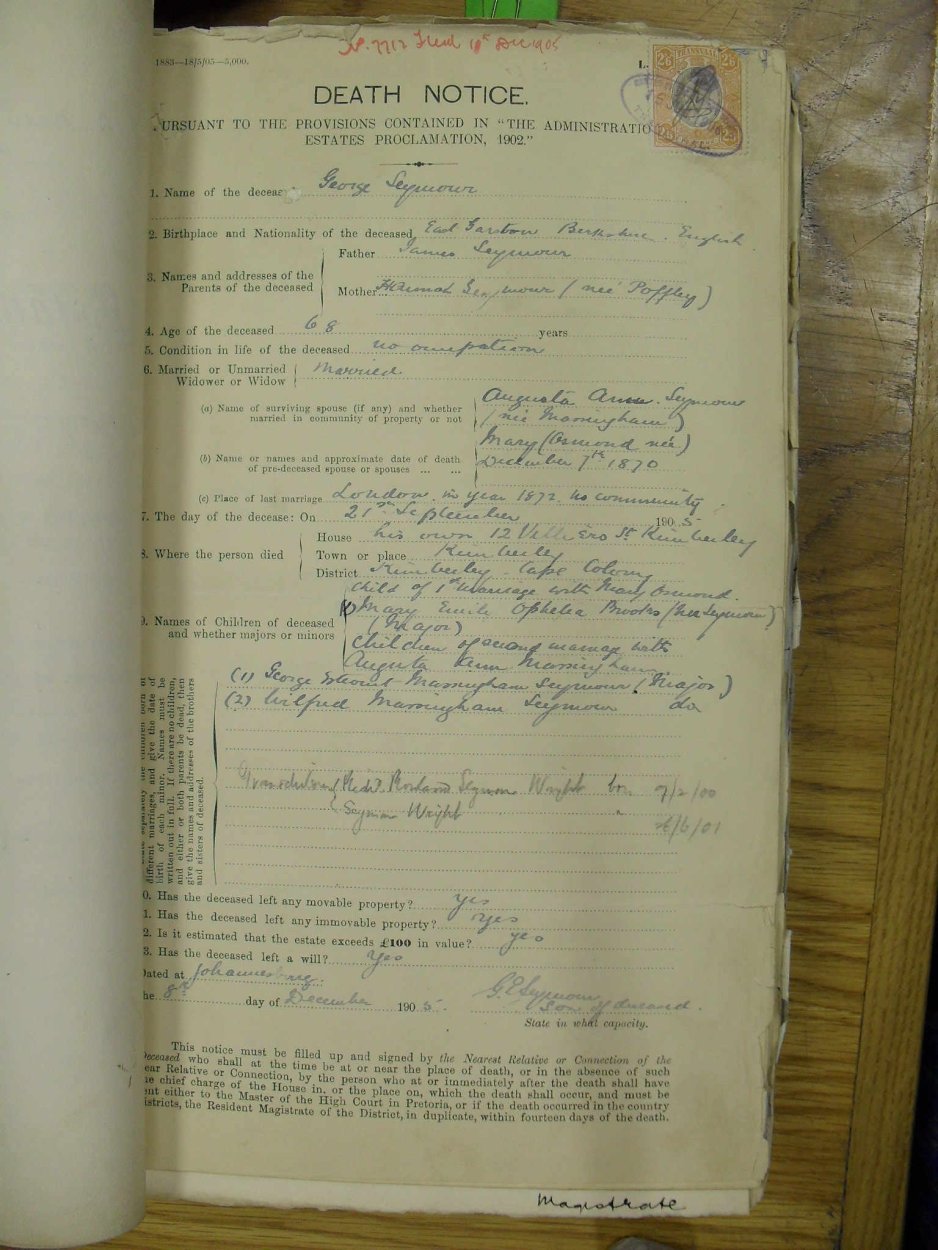 No. 7712 Filed 11th Dec 1905
1883—18/5/05—5,000.
L.
TRANSVAAL
2/6 2/6
DEATH NOTICE.
PURSUANT TO THE PROVISIONS CONTAINED IN "THE ADMINISTRATIO
ESTATES PROCLAMATION, 1902."
1. Name of the deceas George Seymour
2. Birthplace and Nationality of the deceased East Garston Berkshire. English
Father James Seymour
3. Names and addresses of the
Parents of the deceased
Mother Hannah Seymour (neé Poffley)
4. Age of the deceased 68 years
5. Condition in life of the deceased no occupation
6. Married or Unmarried
Widower or Widow
Married
(a) Name of surviving spouse (if any) and whether
married in community of property or not
Augusta Ann Seymour
(neé Massingham)
(b) Name or names and approximate date of death
of pre-deceased spouse or spouses ... ...
Mary (Osmond neé)
December 7th 1870
(c) Place of last marriage London in year 1872 no community
7. The day of the decease: On 21st September 1905
House his own 12 St Kimberley
8. Where the person died
Town or place Kimberley
District Kimberley Cape Colony
9. Names of Children of deceased
and whether majors or minors
Child of 1st Marriage with Mary Osmond.
(1) Mary Emily Ophelia Brooks (nee Seymour)
(Major)
Children of second marriage with
Augusta Ann Massingham
(1) George Massingham Seymour (Major)
(2) Wilfred Massingham Seymour do
different marriages, and give the date of
birth of each minor. Names must be
written out in full. If there are no children,
and either or both parents be dead, then
give the names and addresses of the brothers
and sisters of deceased.
Grandchildren Seymour Wright born 9/2/00
Seymour Wright " /6/01
0. Has the deceased left any movable property? yes
1. Has the deceased left any immovable property? yes
2. Is it estimated that the estate exceeds £100 in value? yes
3. Has the deceased left a will? Yes
Dated at Johannesburg.
the 8th day of December 1905. G.E Seymour
Son of deceased.
State in what capacity.
This notice must be filled up and signed by the Nearest Relative or Connection of the
Deceased who shall at the time be at or near the place of death, or in the absence of such
ear Relative or Connection, by the person who at or immediately after the death shall have
e chief charge of the House in, or the place on, which the death shall occur, and must be
ent either to the Master of the High Court in Pretoria, or if the death occurred in the country
istricts, the Resident Magistrate of the District, in duplicate, within fourteen days of the death.
Magistrate